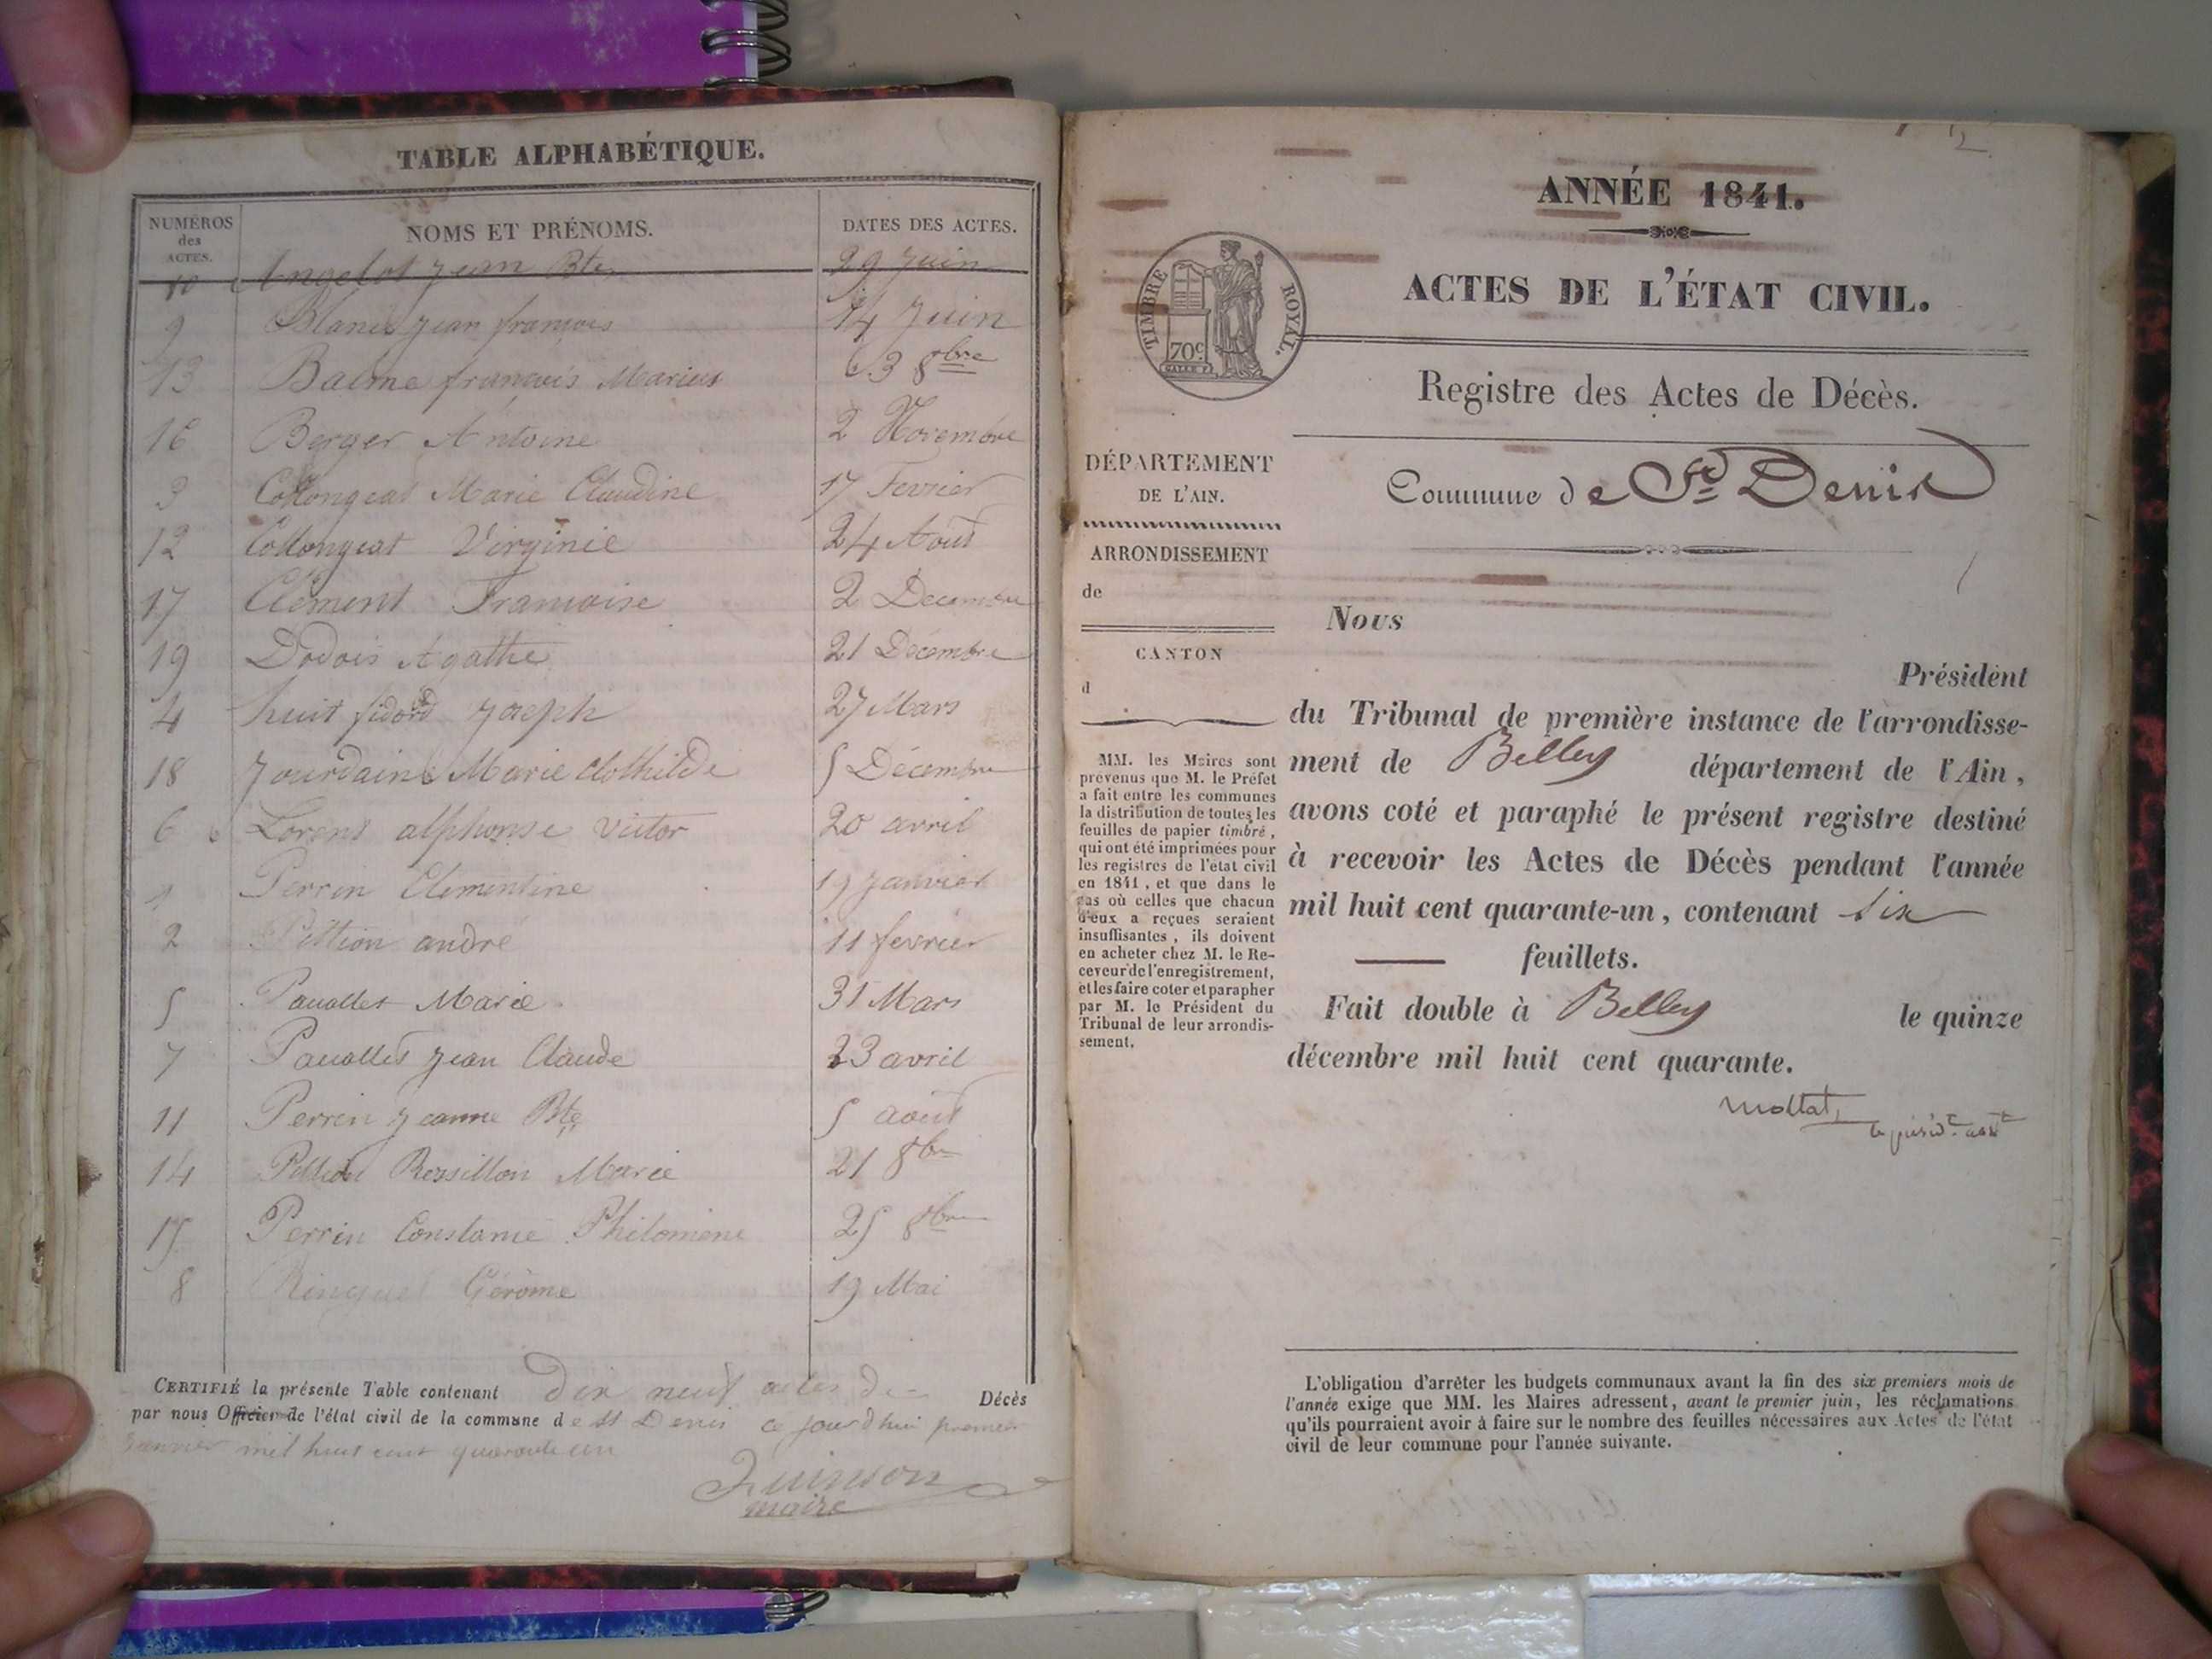 TABLE ALPHABÉTIQUE.
NUMÉROS
des
ACTES.
NOMS ET PRÉNOMS.
DATES DES ACTES.
10 Angelot Jean Bte 29 Juin
9 Blanc Jean françois 14 Juin
13 Balme françois Marius 8bre
16 Berger Antoine 2 Novembre
3 Collongeat Marie Claudine 17 Fevrier
12 Collongeat Virginie 24 Aout
17 Clément Francoise 2 Decembre
19 Dodois Agathe 21 Décembre
4 huit Joseph 27 Mars
18 Jourdain Marie Clothilde 5 Décembre
6 Lorens alphonse victor 20 avril
1 Perrin Clémentine 19 Janvier
2 Pittion andré 11 fevrier
5 Marie 31 Mars
7 Jean Claude 23 avril
11 Perrin Jeanne Bte 5 aout
14 Rossillon Marie 21 8bre
15 Perrin Constance Philomène 25 8bre
8 Ringuet Gérôme 19 Mai
CERTIFIÉ la présente Table contenant Dix neuf actes de Décès
par nous Officier de l'état civil de la commune de St Denis ce jourd'hui premier
Janvier mil huit cent quarante un
Quinson
maire
2
ANNÉE 1841.
TIMBRE ROYAL.
70c
ACTES DE L'ÉTAT CIVIL.
Registre des Actes de Décès.
DÉPARTEMENT
DE L'AIN.
Commune de St Denis
ARRONDISSEMENT
de
CANTON
d
MM. les Maires sont
prévenus que M. le Préfet
a fait entre les communes
la distribution de toutes les
feuilles de papier timbré,
qui ont été imprimées pour
les registres de l'état civil
en 1841, et que dans le
cas où celles que chacun
d'eux a reçues seraient
insuffisantes, ils doivent
en acheter chez M. le Re-
ceveur de l'enregistrement,
et les faire coter et parapher
par M. le Président du
Tribunal de leur arrondis-
sement.
Nous
Président
du Tribunal de première instance de l'arrondisse-
ment de Belley département de l'Ain,
avons coté et paraphé le présent registre destiné
à recevoir les Actes de Décès pendant l'année
mil huit cent quarante-un, contenant six
feuillets.
Fait double à Belley le quinze
décembre mil huit cent quarante.
L'obligation d'arrêter les budgets communaux avant la fin des six premiers mois de
l'année exige que MM. les Maires adressent, avant le premier juin, les réclamations
qu'ils pourraient avoir à faire sur le nombre des feuilles nécessaires aux Actes de l'état
civil de leur commune pour l'année suivante.